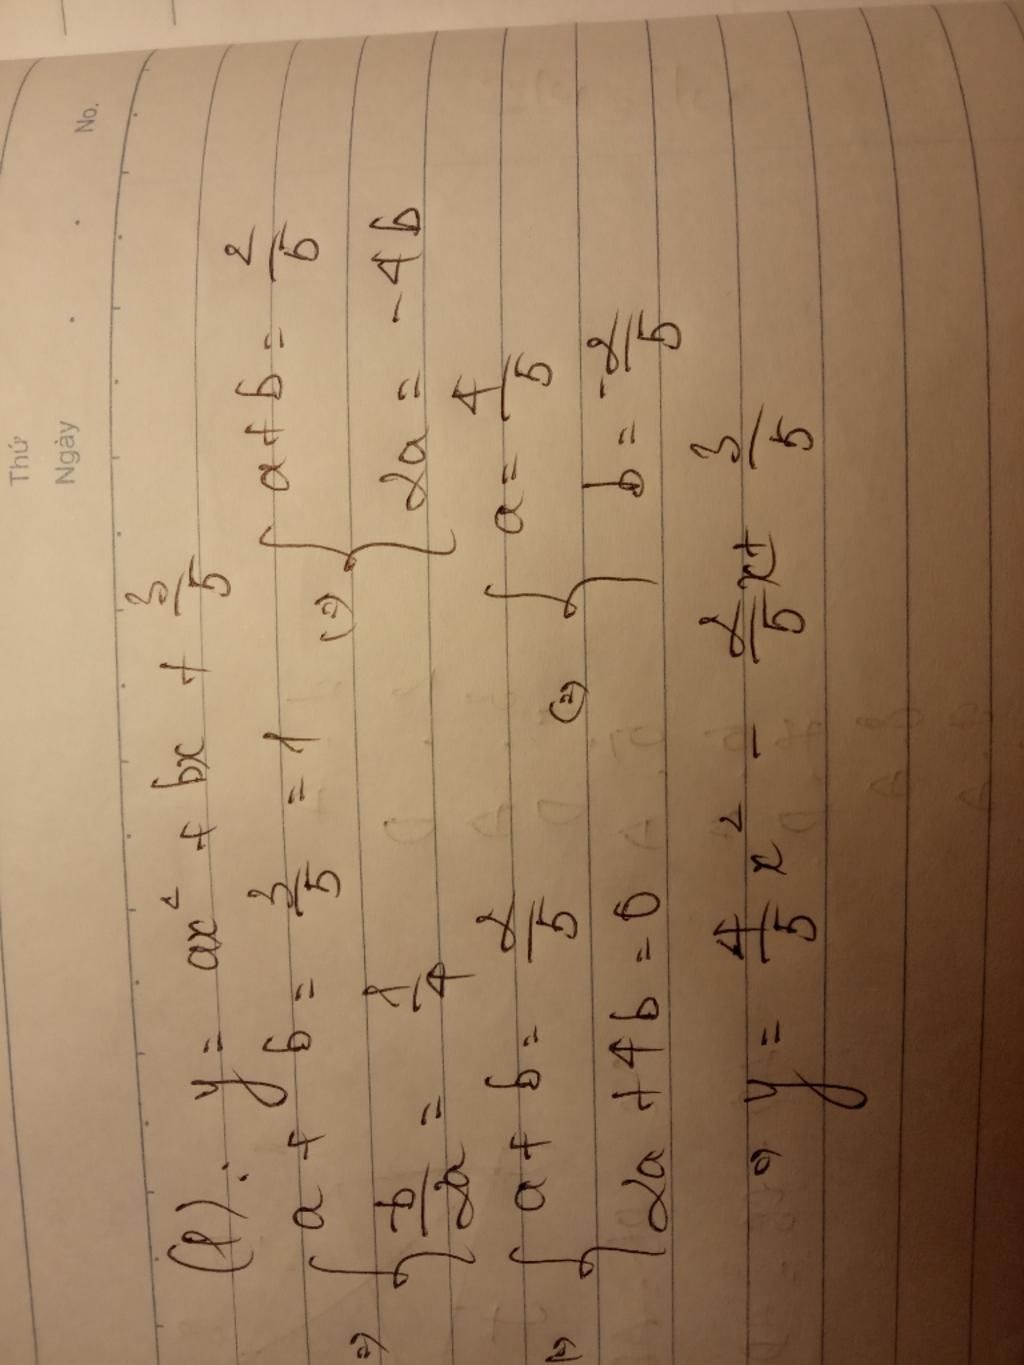 Thứ
Ngày
No.
(P): y = ax² + bx + 3/5
=) { a + b = 3/5 = 1 (=) { a + b = 2/5
-b/2a = 1/4 2a = -4b
(=) { a + b = 2/5 (=) { a = 4/5
2a + 4b = 0 b = -2/5
=) y = 4/5 x² - 2/5 x + 3/5